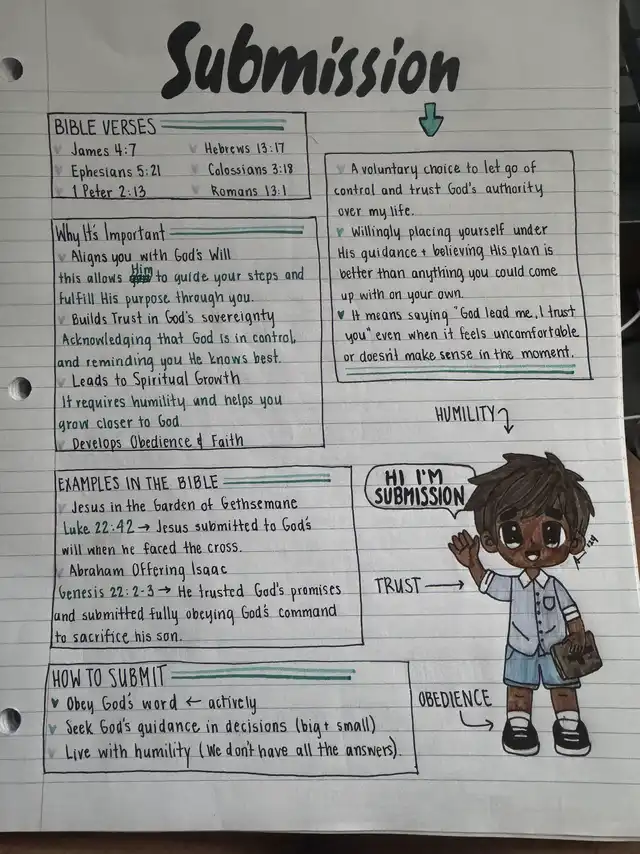 Submission
BIBLE VERSES
James 4:7
Hebrews 13:17
Ephesians 5:21
Colossians 3:18
1 Peter 2:13
Romans 13:1
A voluntary choice to let go of
control and trust God's authority
over my life.
Willingly placing yourself under
His guidance + believing His plan is
better than anything you could come
up with on your own.
It means saying "God lead me, I trust
you" even when it feels uncomfortable
or doesn't make sense in the moment.
Why It's Important
Aligns you with God's Will
this allows Him to guide your steps and
fulfill His purpose through you.
Builds Trust in God's sovereignty
Acknowledging that God is in control,
and reminding you He knows best.
Leads to Spiritual Growth
It requires humility and helps you
grow closer to God
Develops Obedience & Faith
EXAMPLES IN THE BIBLE
Jesus in the Garden of Gethsemane
Luke 22:42 → Jesus submitted to God's
will when he faced the cross.
Abraham Offering Isaac
Genesis 22:2-3 → He trusted God's promises
and submitted fully obeying God's command
to sacrifice his son.
HOW TO SUBMIT
Obey God's word ← actively
Seek God's guidance in decisions (big + small)
Live with humility (We don't have all the answers).
HUMILITY
HI I'M
SUBMISSION
TRUST →
OBEDIENCE